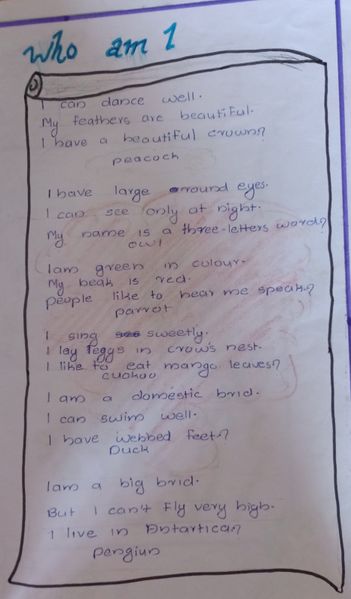 who am I
I can dance well.
My feathers are beautiful.
I have a beautiful crown?
peacock
I have large round eyes.
I can see only at night.
My name is a three-letters word?
owl
I am green in colour.
My beak is red.
people like to hear me speak?
parrot
I sing sweetly.
I lay eggs in crow's nest.
I like to eat mango leaves?
cuokoo
I am a domestic brid.
I can swim well.
I have webbed feet?
Duck
I am a big brid.
But I can't fly very high.
I live in Antartica?
pengiun